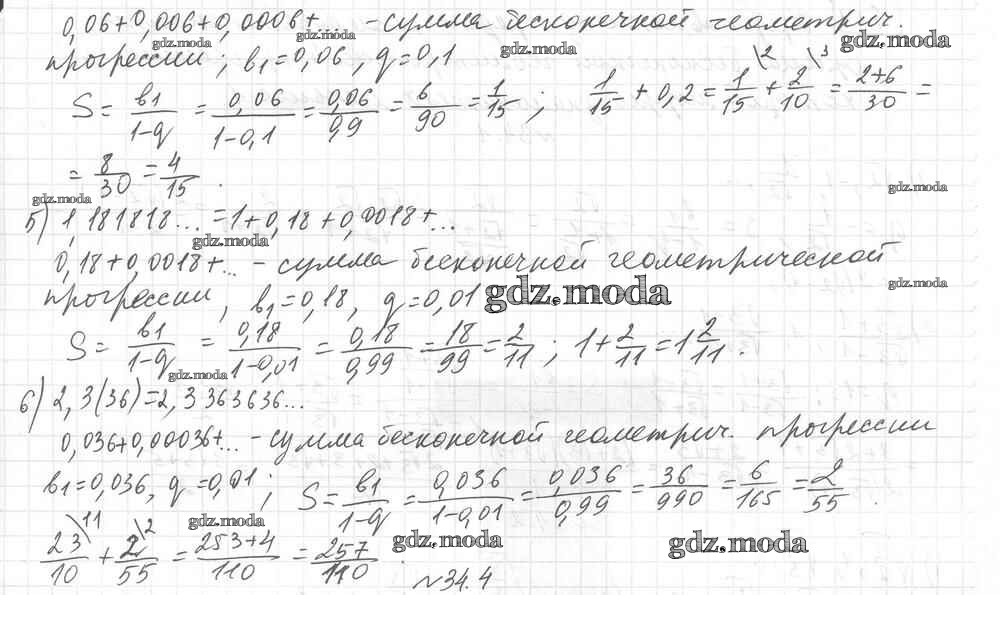 0,06+0,006+0,0006+... -сумма бесконечной геометрич.
gdz.moda gdz.moda gdz.moda gdz.moda
прогрессии; b1=0,06, q=0,1
S = b1/1-q = 0,06/1-0,1 = 0,06/0,9 = 6/90 = 1/15 ; 1/15 + 0,2 = 1/15 \2 + 2/10 \3 = 2+6/30 =
= 8/30 = 4/15 .
gdz.moda gdz.moda
5) 1,181818... = 1+0,18+0,0018+...
gdz.moda
0,18+0,0018+... - сумма бесконечной геометрической
прогрессии, b1=0,18, q=0,01 gdz.moda gdz.moda
S = b1/1-q = 0,18/1-0,01 = 0,18/0,99 = 18/99 = 2/11 ; 1+2/11 = 1 2/11 .
gdz.moda
6) 2,3(36)=2,3363636...
0,036+0,00036+... -сумма бесконечной геометрич. прогрессии
b1=0,036, q=0,01 ; S = b1/1-q = 0,036/1-0,01 = 0,036/0,99 = 36/990 = 6/165 = 2/55 .
gdz.moda gdz.moda gdz.moda
23/10 \11 + 2/55 \2 = 253+4/110 = 257/110 .
№34.4